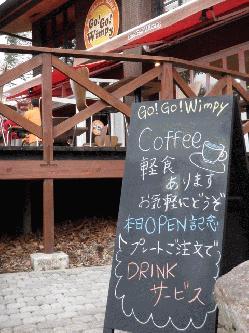 Go! Go!
Wimpy
Go! Go! Wimpy
Coffee
軽食
あります
お気軽にどうぞ
本日OPEN記念
プレートご注文で
DRINK
サービス